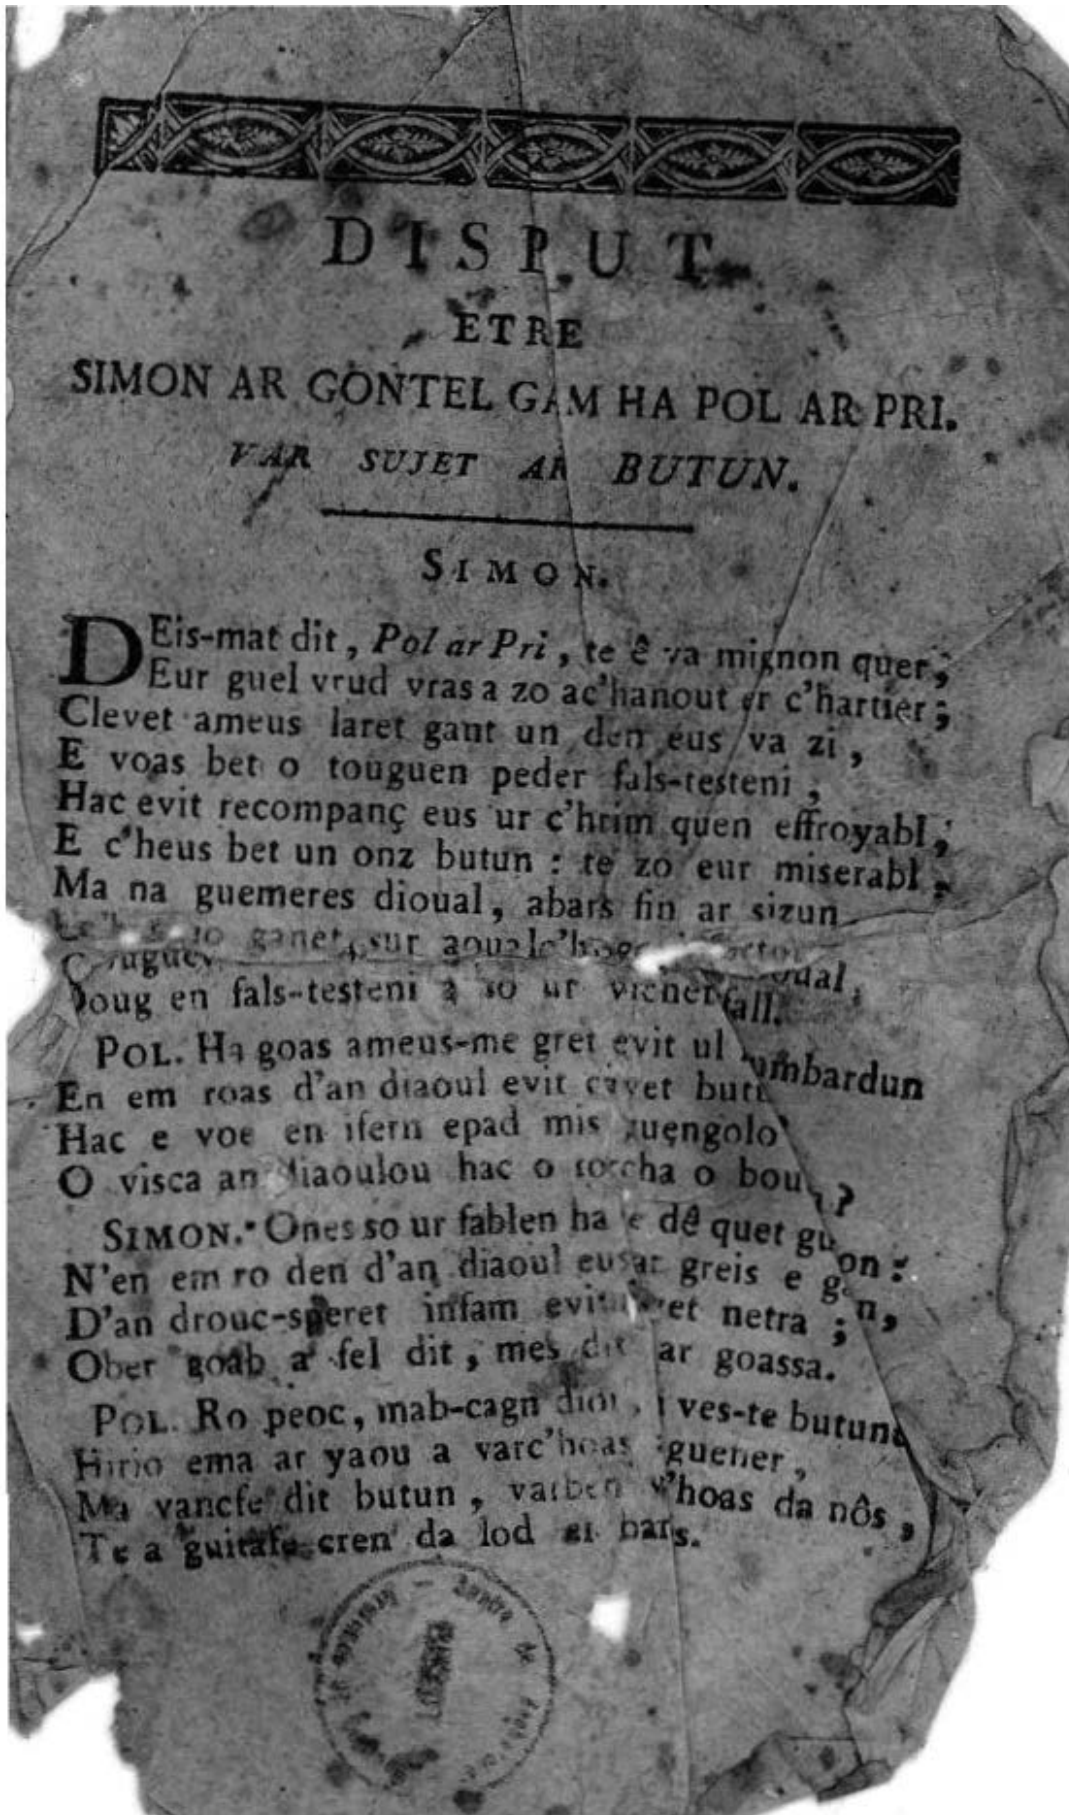 DISPUT
ETRE
SIMON AR GONTEL GAM HA POL AR PRI.
VAR SUJET AR BUTUN.
SIMON.
DEis-mat dit, Pol ar Pri, te ê va mignon quer;
Eur guel vrud vras a zo ac'hanout er c'hartier;
Clevet ameus laret gant un den eus va zi,
E voas bet o touguen peder fals-testeni;
Hac evit recompanç eus ur c'hrim quen effroyabl,
E c'heus bet un onz butun: te zo eur miserabl,
Ma na guemeres dioual, abars fin ar sizun
ganet, sur
Doug en fals-testeni a so ur vicher fall.
POL. Ha goas ameus-me gret evit ul
En em roas d'an diaoul evit cavet
Hac e voe en ifern epad mis guengolo
O visca an diaoulou hac o torcha o
SIMON. Ones so ur fablen ha ne dê quet
N'en em ro den d'an diaoul eus ar greis e
D'an drouc-speret infam evit netra;
Ober goab a fel dit, mes dit ar goassa.
POL. Ro peoc, mab-cagn ves-te
Hirio ema ar yaou a varc'hoas guener,
Ma vancfe dit butun, c'hoas da nôs,
Te a guitafe cren da lod bars.